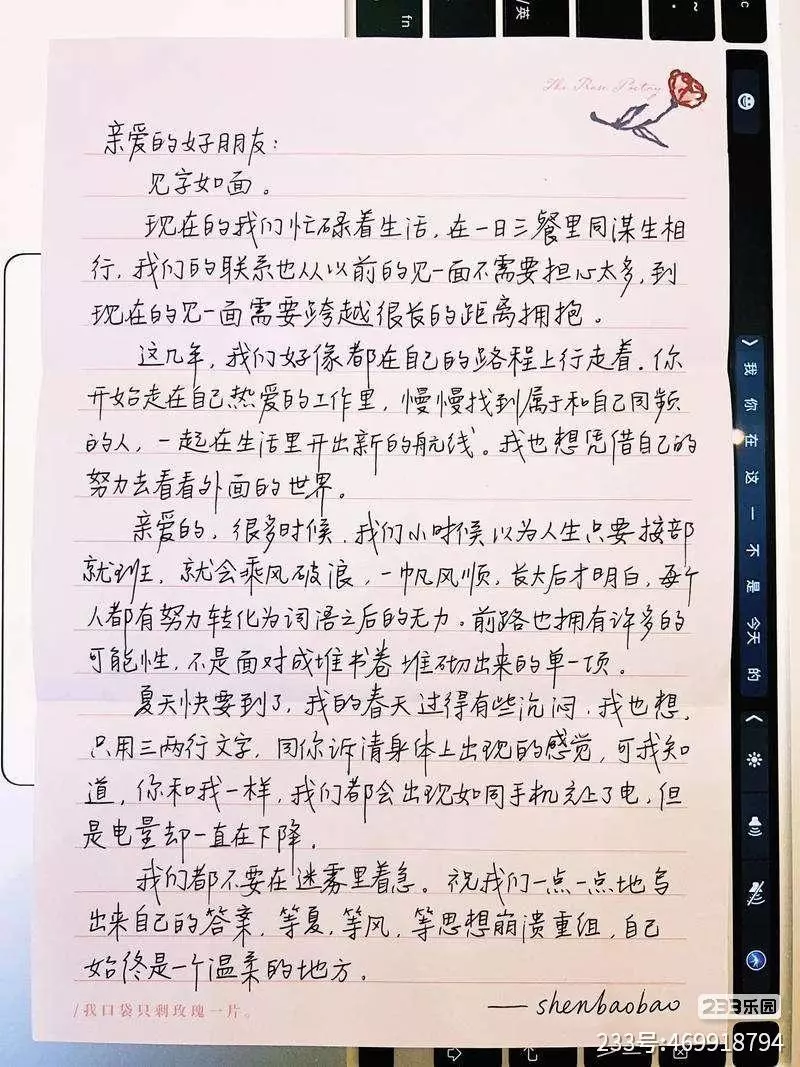 fn
/英
c
The Rose Poetry
亲爱的好朋友:
见字如面。
现在的我们忙碌着生活,在一日三餐里同谋生相
行,我们的联系也从以前的见一面不需要担心太多,到
现在的见一面需要跨越很长的距离拥抱。
这几年,我们好像都在自己的路程上行走着。你
开始走在自己热爱的工作里,慢慢找到属于和自己同频
的人,一起在生活里开出新的航线。我也想凭借自己的
努力去看看外面的世界。
亲爱的,很多时候,我们小时候以为人生只要按部
就班,就会乘风破浪,一帆风顺,长大后才明白,每个
人都有努力转化为词语之后的无力。前路也拥有许多的
可能性,不是面对成堆书卷堆砌出来的单一项。
夏天快要到了,我的春天过得有些沉闷,我也想,
只用三两行文字,同你诉清身体上出现的感觉,可我知
道,你和我一样,我们都会出现如同手机充上了电,但
是电量却一直在下降。
我们都不要在迷雾里着急。祝我们一点一点地写
出来自己的答案,等夏,等风,等思想崩溃重组,自己
始终是一个温柔的地方。
——shenbaobao
/我口袋只剩玫瑰一片。
我 你 在 这 一 不 是 今天 的
233乐园
233号:469918794